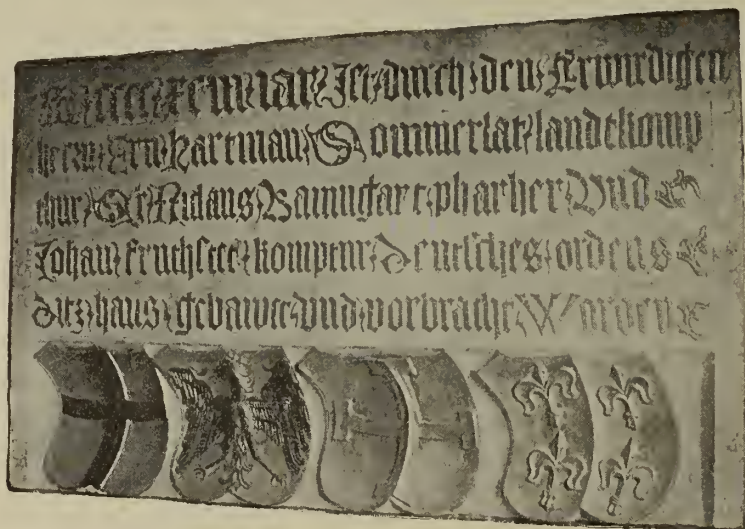 iar Ist durch den Erwirdigen
hern Ern Hartman Sommerlat landtkomp
thur Er Niclaus Bamngart pharher Vnd
Johan kompthur Deutsches ordens
Ditz haus gebawet vnd vorbracht Worden